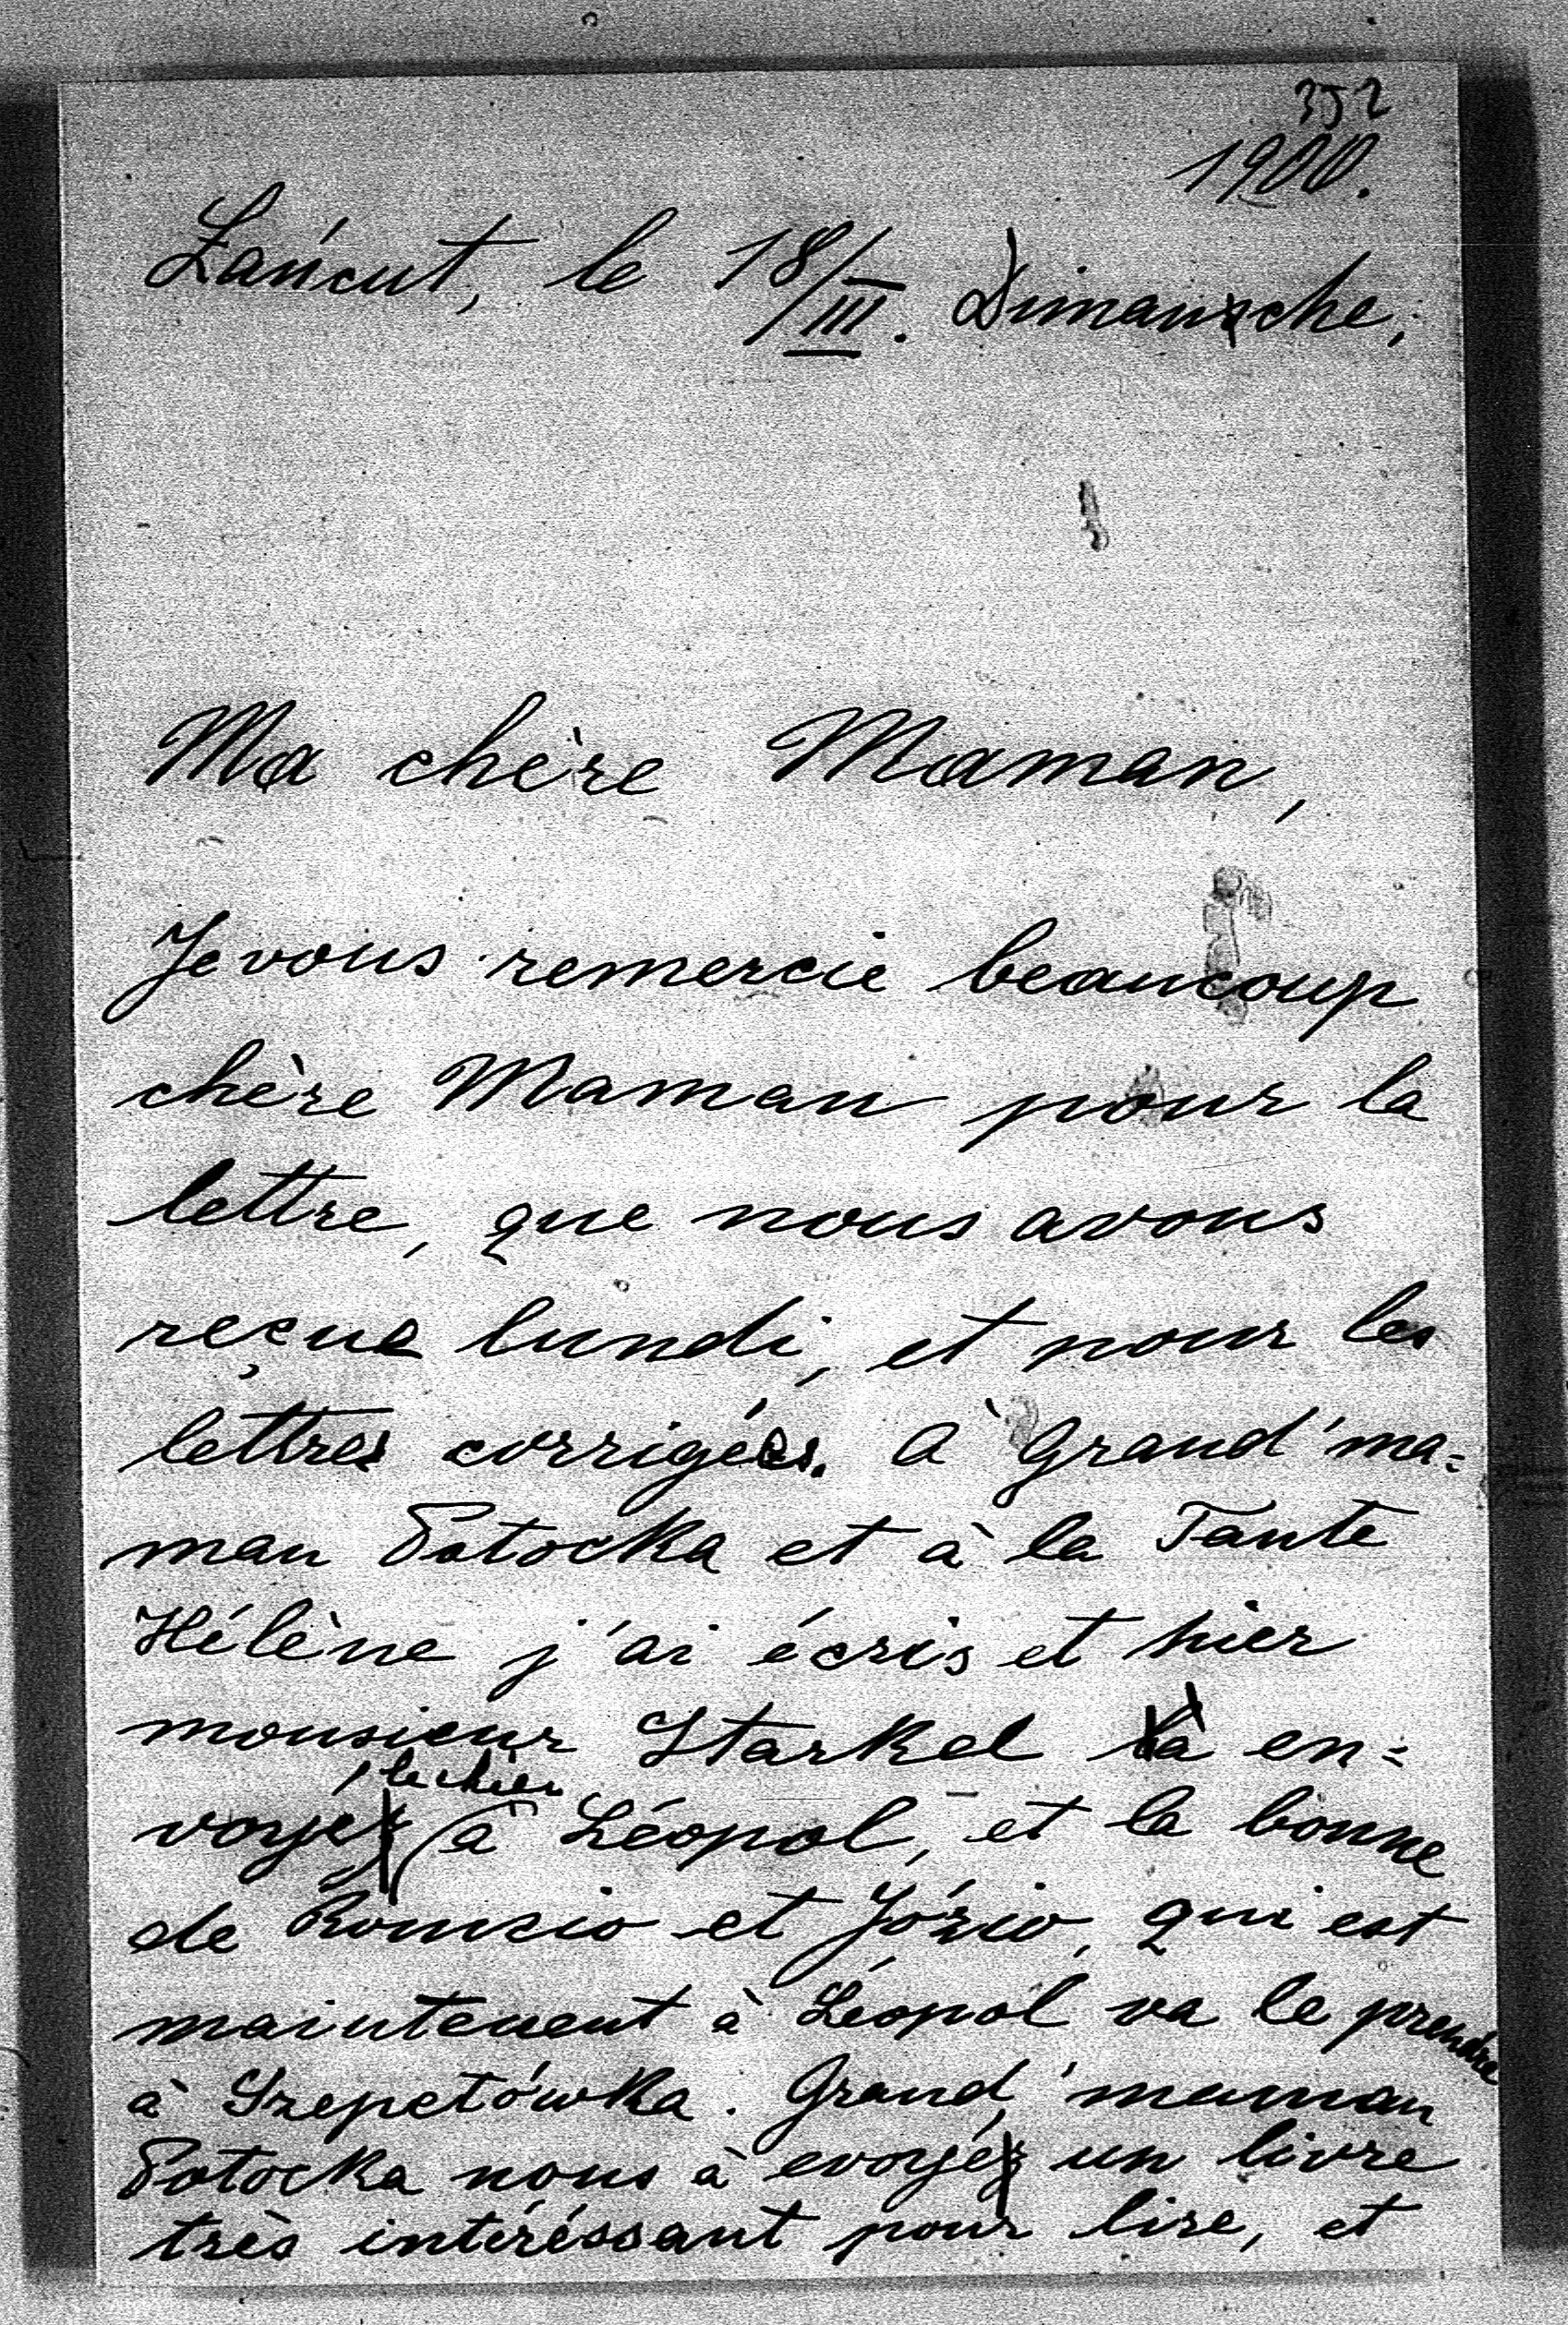 352
1900.
Łańcut, le 18/III. Dimanche,
Ma chère Maman,
Je vous remercie beaucoup
chère Maman pour la
lettre, que nous avons
reçue lundi, et pour les
lettres corrigées. A Grand'ma=
man Potocka et à la Tante
Hélène j'ai écris et hier
monsieur Starkel à en=
voyé, le chien
à Léopol, et la bonne
de Romcio et Józio, qui est
maintenent à Léopol va le prendre
à Szepetówka. Grand'maman
Potocka nous à evoyé un livre
très intéréssant pour lire, et